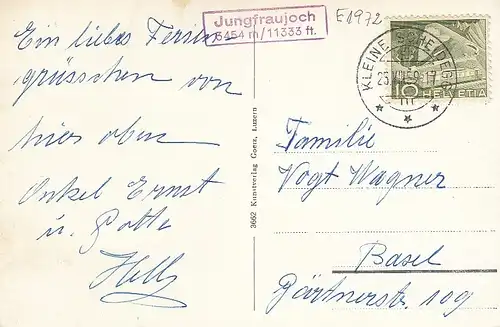 Jungfraujoch
3454 m/11333 ft.
E1972
Ein liebes Ferien-
grüsschen von
hier oben
Onkel Ernst
u. Gotte
Helly
3662 Kunstverlag Goetz, Luzern
KLEINE SCHEIDEGG
10 HELVETIA
Familie
Vogt Wagner
Basel
Gärtnerstr. 109